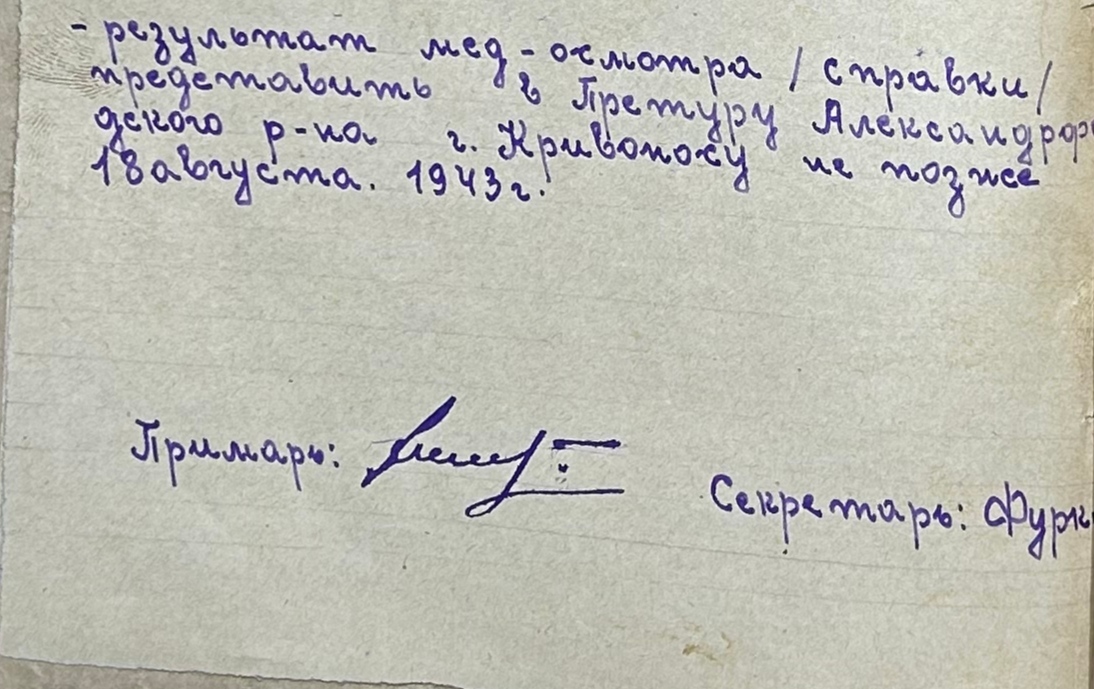 - результат мед-осмотра /справки/
представить в Претуру Александров
дского р-на г. Кривоносу не позже
18 августа. 1943 г.
Примарь:
Секретарь: Фурк